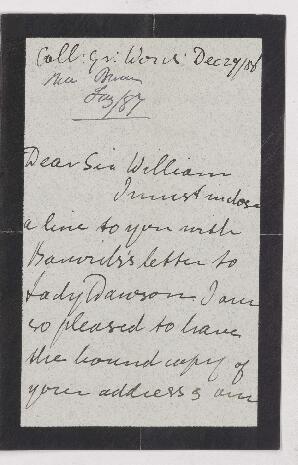 Coll: Gn: Worcs: Dec 29/86
Jan/87
Dear Sir William
I must enclose
a line to you with
letter to
Lady Dawson I am
so pleased to have
the bound copy of
your address & am